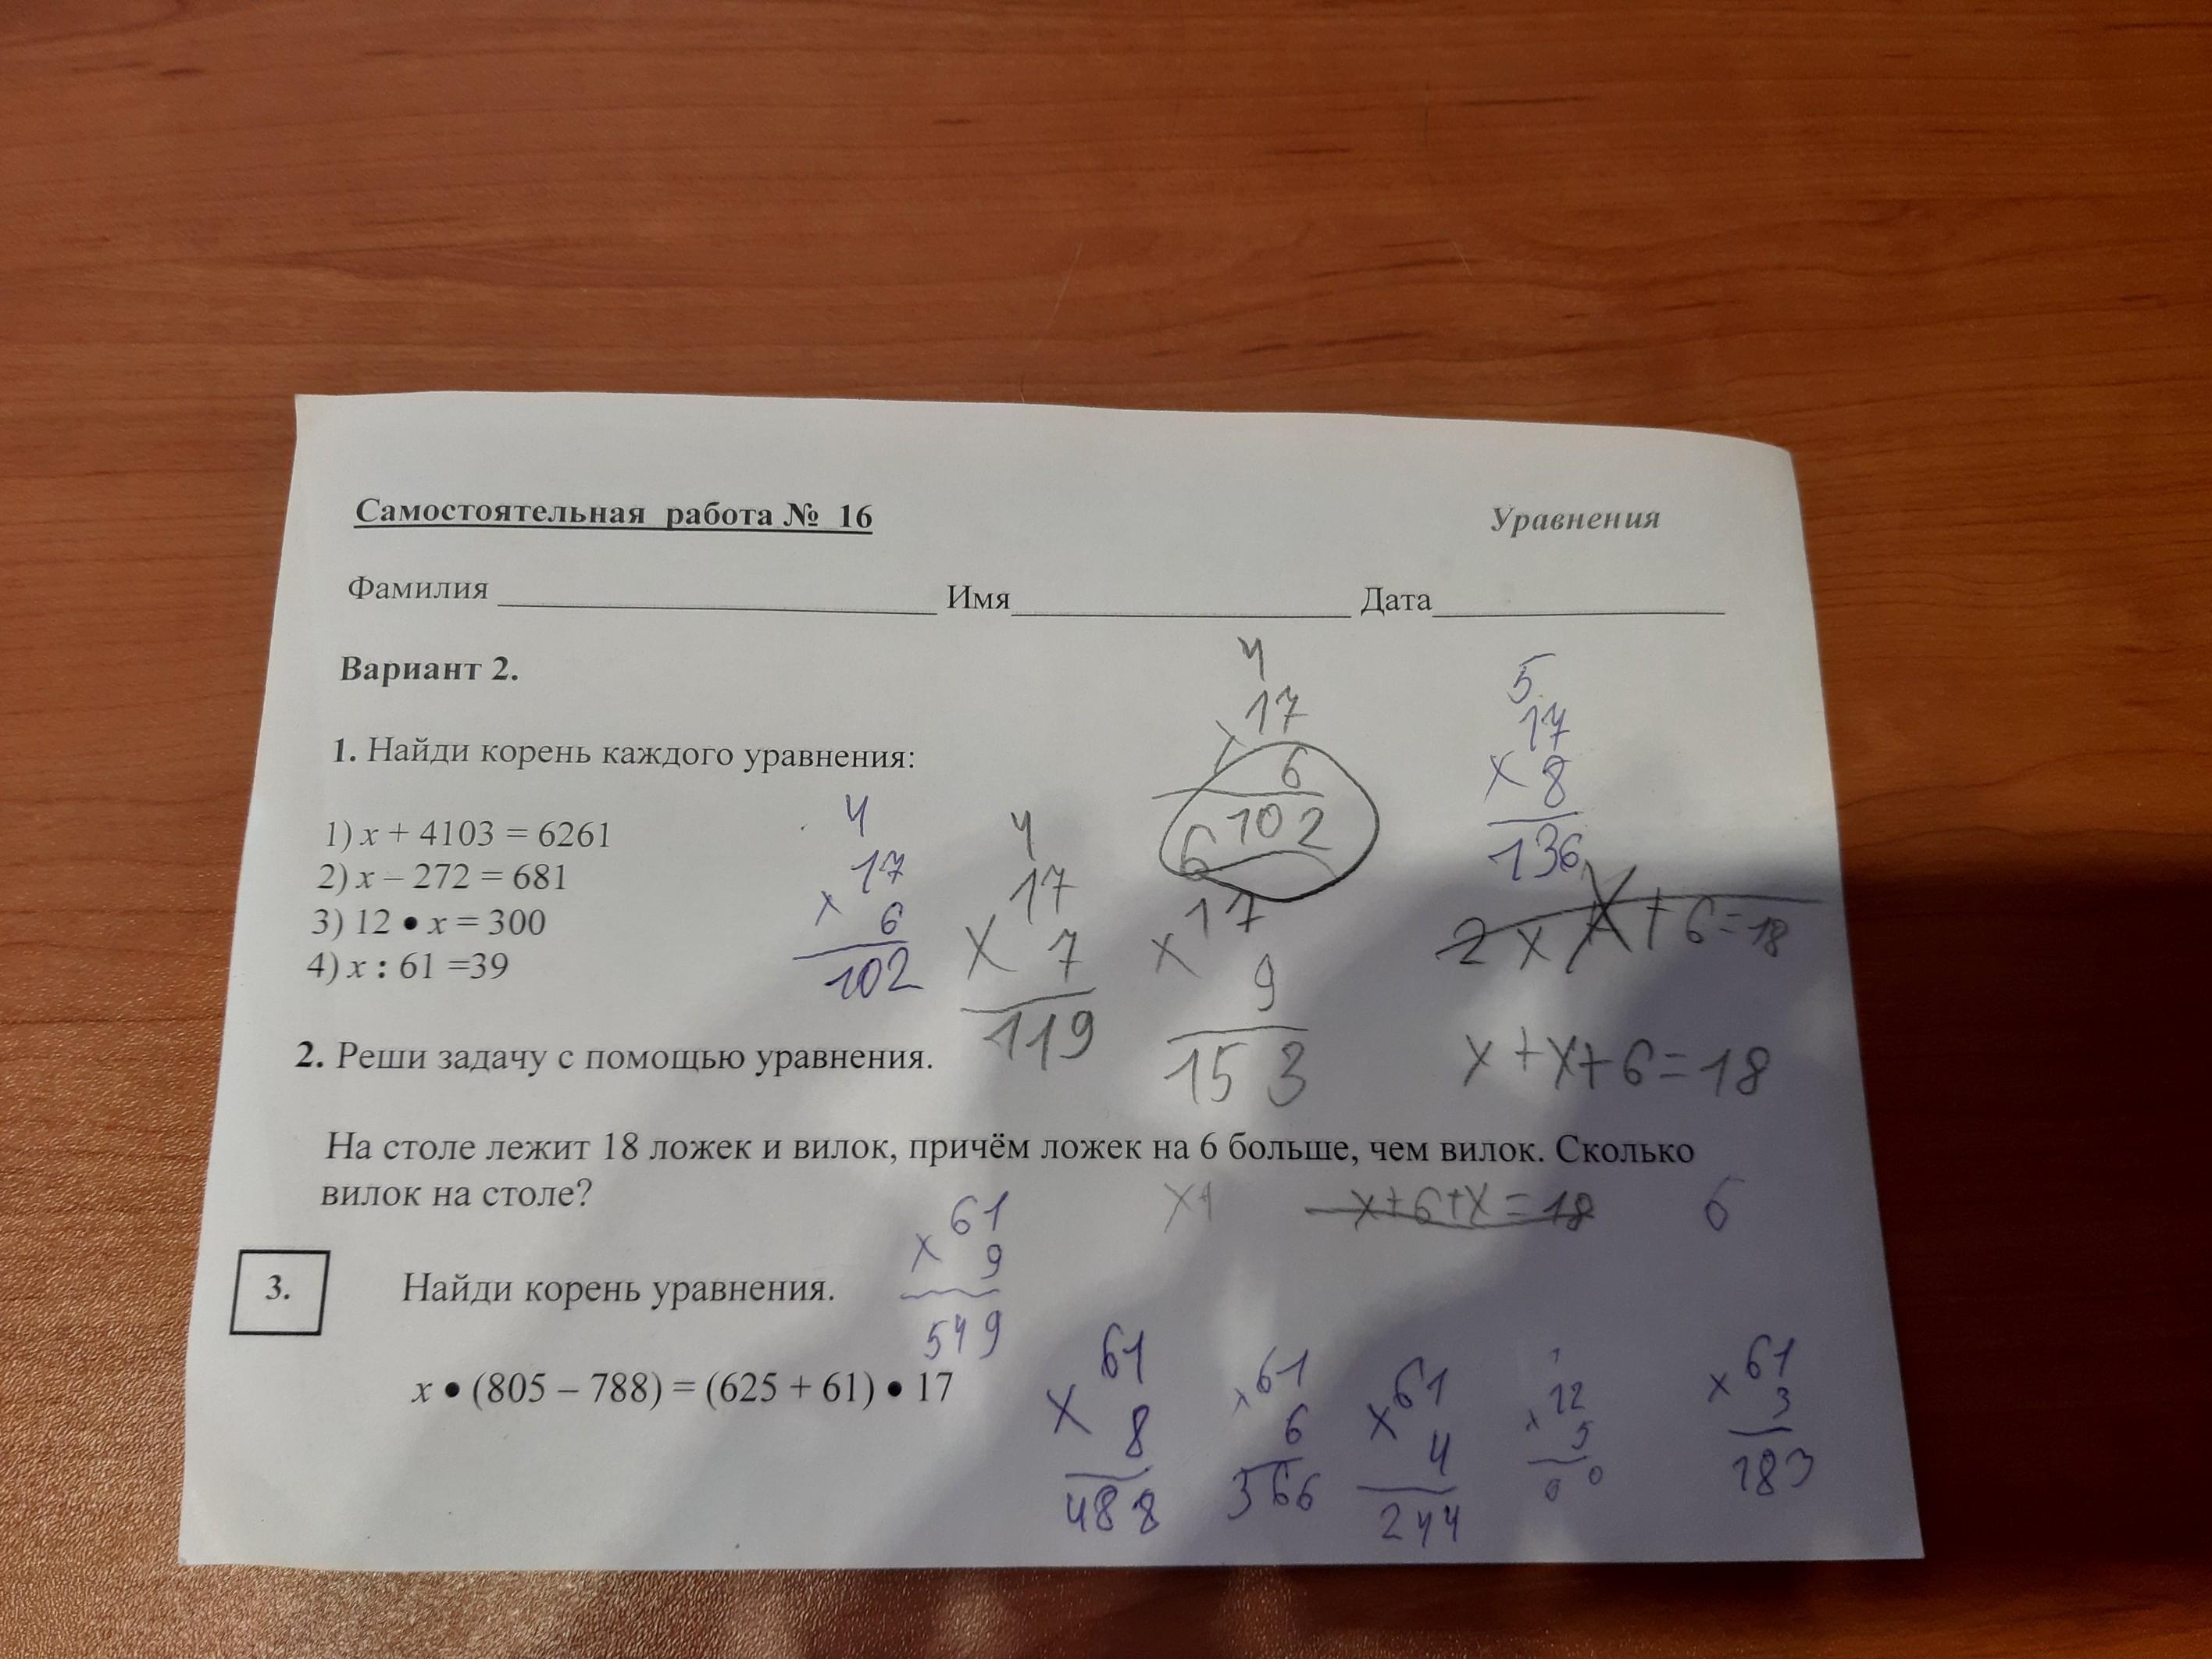 Самостоятельная работа № 16 Уравнения
Фамилия Имя Дата
Вариант 2.
1. Найди корень каждого уравнения:
1) x + 4103 = 6261
2) x – 272 = 681
3) 12 • x = 300
4) x : 61 =39
4
17
× 6
102
4
17
× 7
119
4
17
× 6
102
6
17
× 9
153
5
17
× 8
136
2 × X + 6 = 18
x + x + 6 = 18
2. Реши задачу с помощью уравнения.
На столе лежит 18 ложек и вилок, причём ложек на 6 больше, чем вилок. Сколько
вилок на столе?
x + 6 + x = 18
6
3. Найди корень уравнения.
x • (805 – 788) = (625 + 61) • 17
61
× 9
549
61
× 8
488
61
× 6
366
61
× 4
244
1
12
× 5
61
× 3
183